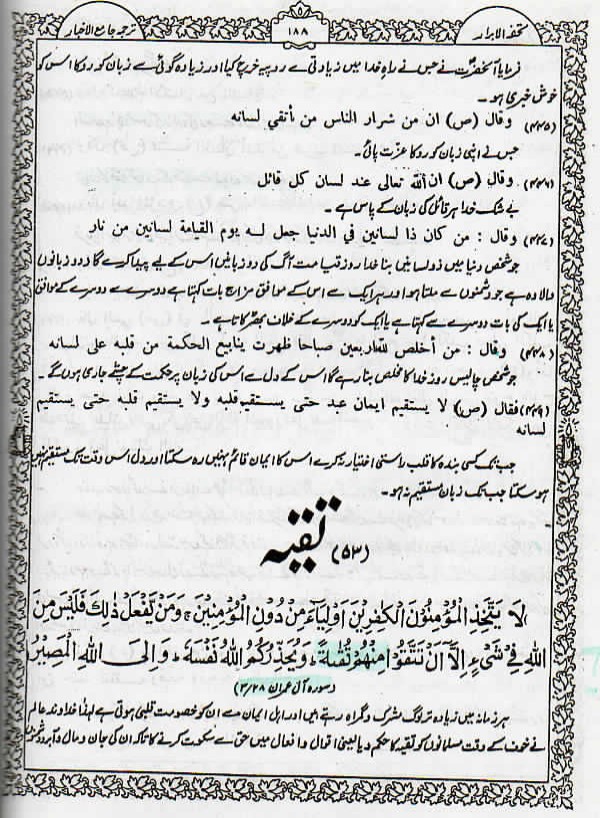 تحفۃ الابرار ۱۸۸ ترجمہ جامع الاخبار
فرمایا آنحضرت نے جس نے راہ خدا میں زیادتی سے روپیہ خرچ کیا اور زیادہ گوئی سے زبان کو روکا اس کو
خوش خبری ہو۔
(۴۴۵) وقال (ص) ان من شرار الناس من مأتقي لسانه
جس نے اپنی زبان کو روکا عزت پائی۔
(۴۴۶) وقال (ص) ان الله تعالى عند لسان كل قائل
بے شک خدا ہر قائل کی زبان کے پاس ہے۔
(۴۴۷) وقال : من كان ذا لسانين في الدنيا جعل له يوم القامة لسانين من نار
جو شخص دنیا میں دو لسانیں بنا خدا روز قیامت آگ کی دو زبانیں اس کے لیے پیدا کرے گا دو زبانوں
والا وہ ہے جو دشمنوں سے ملتا ہو اور ہر ایک سے اس کے موافق مزاج بات کہتا ہے دوسرے سے دوسرے کے موافق
یا ایک کی بات دوسرے سے کہتا ہے یا ایک کو دوسرے کے خلاف بھڑکاتا ہے۔
(۴۴۸) وقال : من أخلص لله أربعين صباحا ظهرت ينابيع الحكمة من قلبه على لسانه
جو شخص چالیس روز خدا کا مخلص بنا رہے گا اس کے دل سے اس کی زبان پر حکمت کے چشمے جاری ہوں گے۔
(۴۴۹) فقال (ص) لا يستقيم ايمان عبد حتى يستقيم قلبه ولا يستقيم قلبه حتى يستقيم
لسانه
جب تک کسی بندہ کا قلب راستی اختیار نہ کرے اس کا ایمان قائم نہیں رہ سکتا اور دل اس وقت تک مستقیم نہیں
ہو سکتا جب تک زبان مستقیم نہ ہو۔
(۵۳) تقیہ
لَا يَتَّخِذِ الْمُؤْمِنُونَ الْكٰفِرِيْنَ اَوْلِيَآءَ مِنْ دُوْنِ الْمُؤْمِنِيْنَ ۚ وَمَنْ يَّفْعَلْ ذٰلِكَ فَلَيْسَ مِنَ
اللّٰهِ فِىْ شَىْءٍ اِلَّآ اَنْ تَتَّقُوْا مِنْهُمْ تُقٰىةً ؕ وَيُحَذِّرُكُمُ اللّٰهُ نَفْسَهٗ ؕ وَاِلَى اللّٰهِ الْمَصِيْرُ
(سورہ آل عمران ۳/۲۸)
ہر زمانہ میں زیادہ تر لوگ مشرک و گمراہ رہتے ہیں اور اہل ایمان سے ان کو خصومت قلبی ہوتی ہے لہٰذا خداوند عالم
نے خوف کے وقت مسلمانوں کو تقیہ کا حکم دیا یعنی اقوال و افعال میں حق سے سکوت کرنے کا تاکہ ان کی جان و مال و آبرو